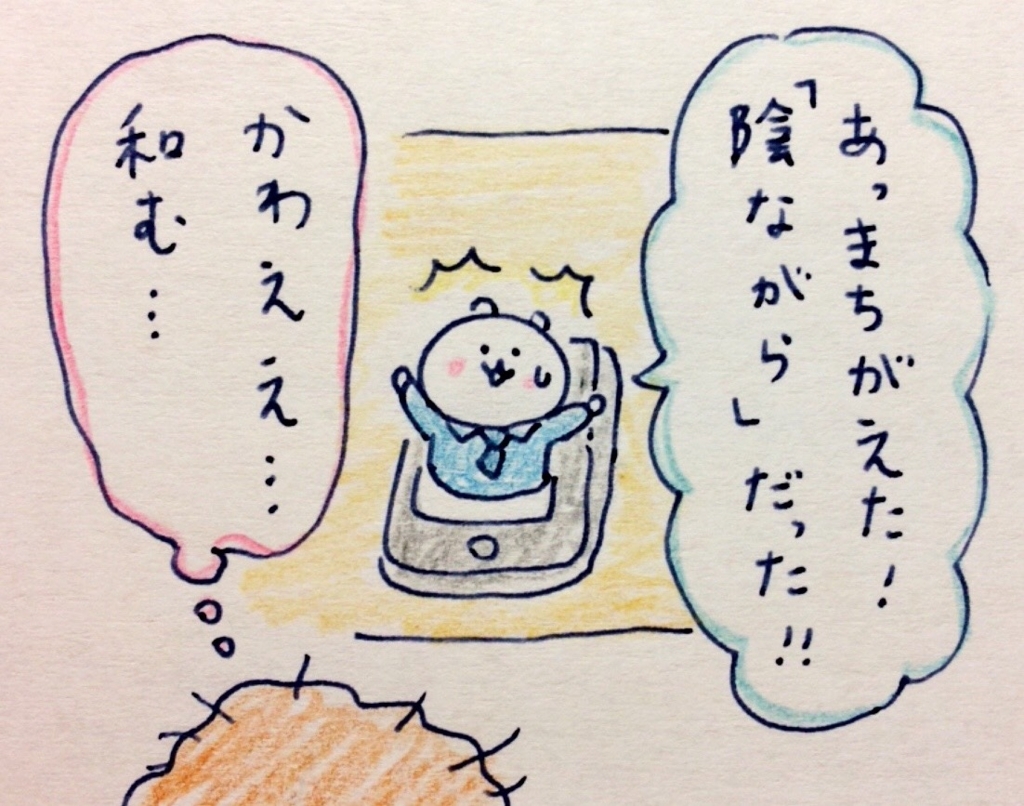 あっまちがえた!
「陰ながら」だった!!
かわええ…
和む…